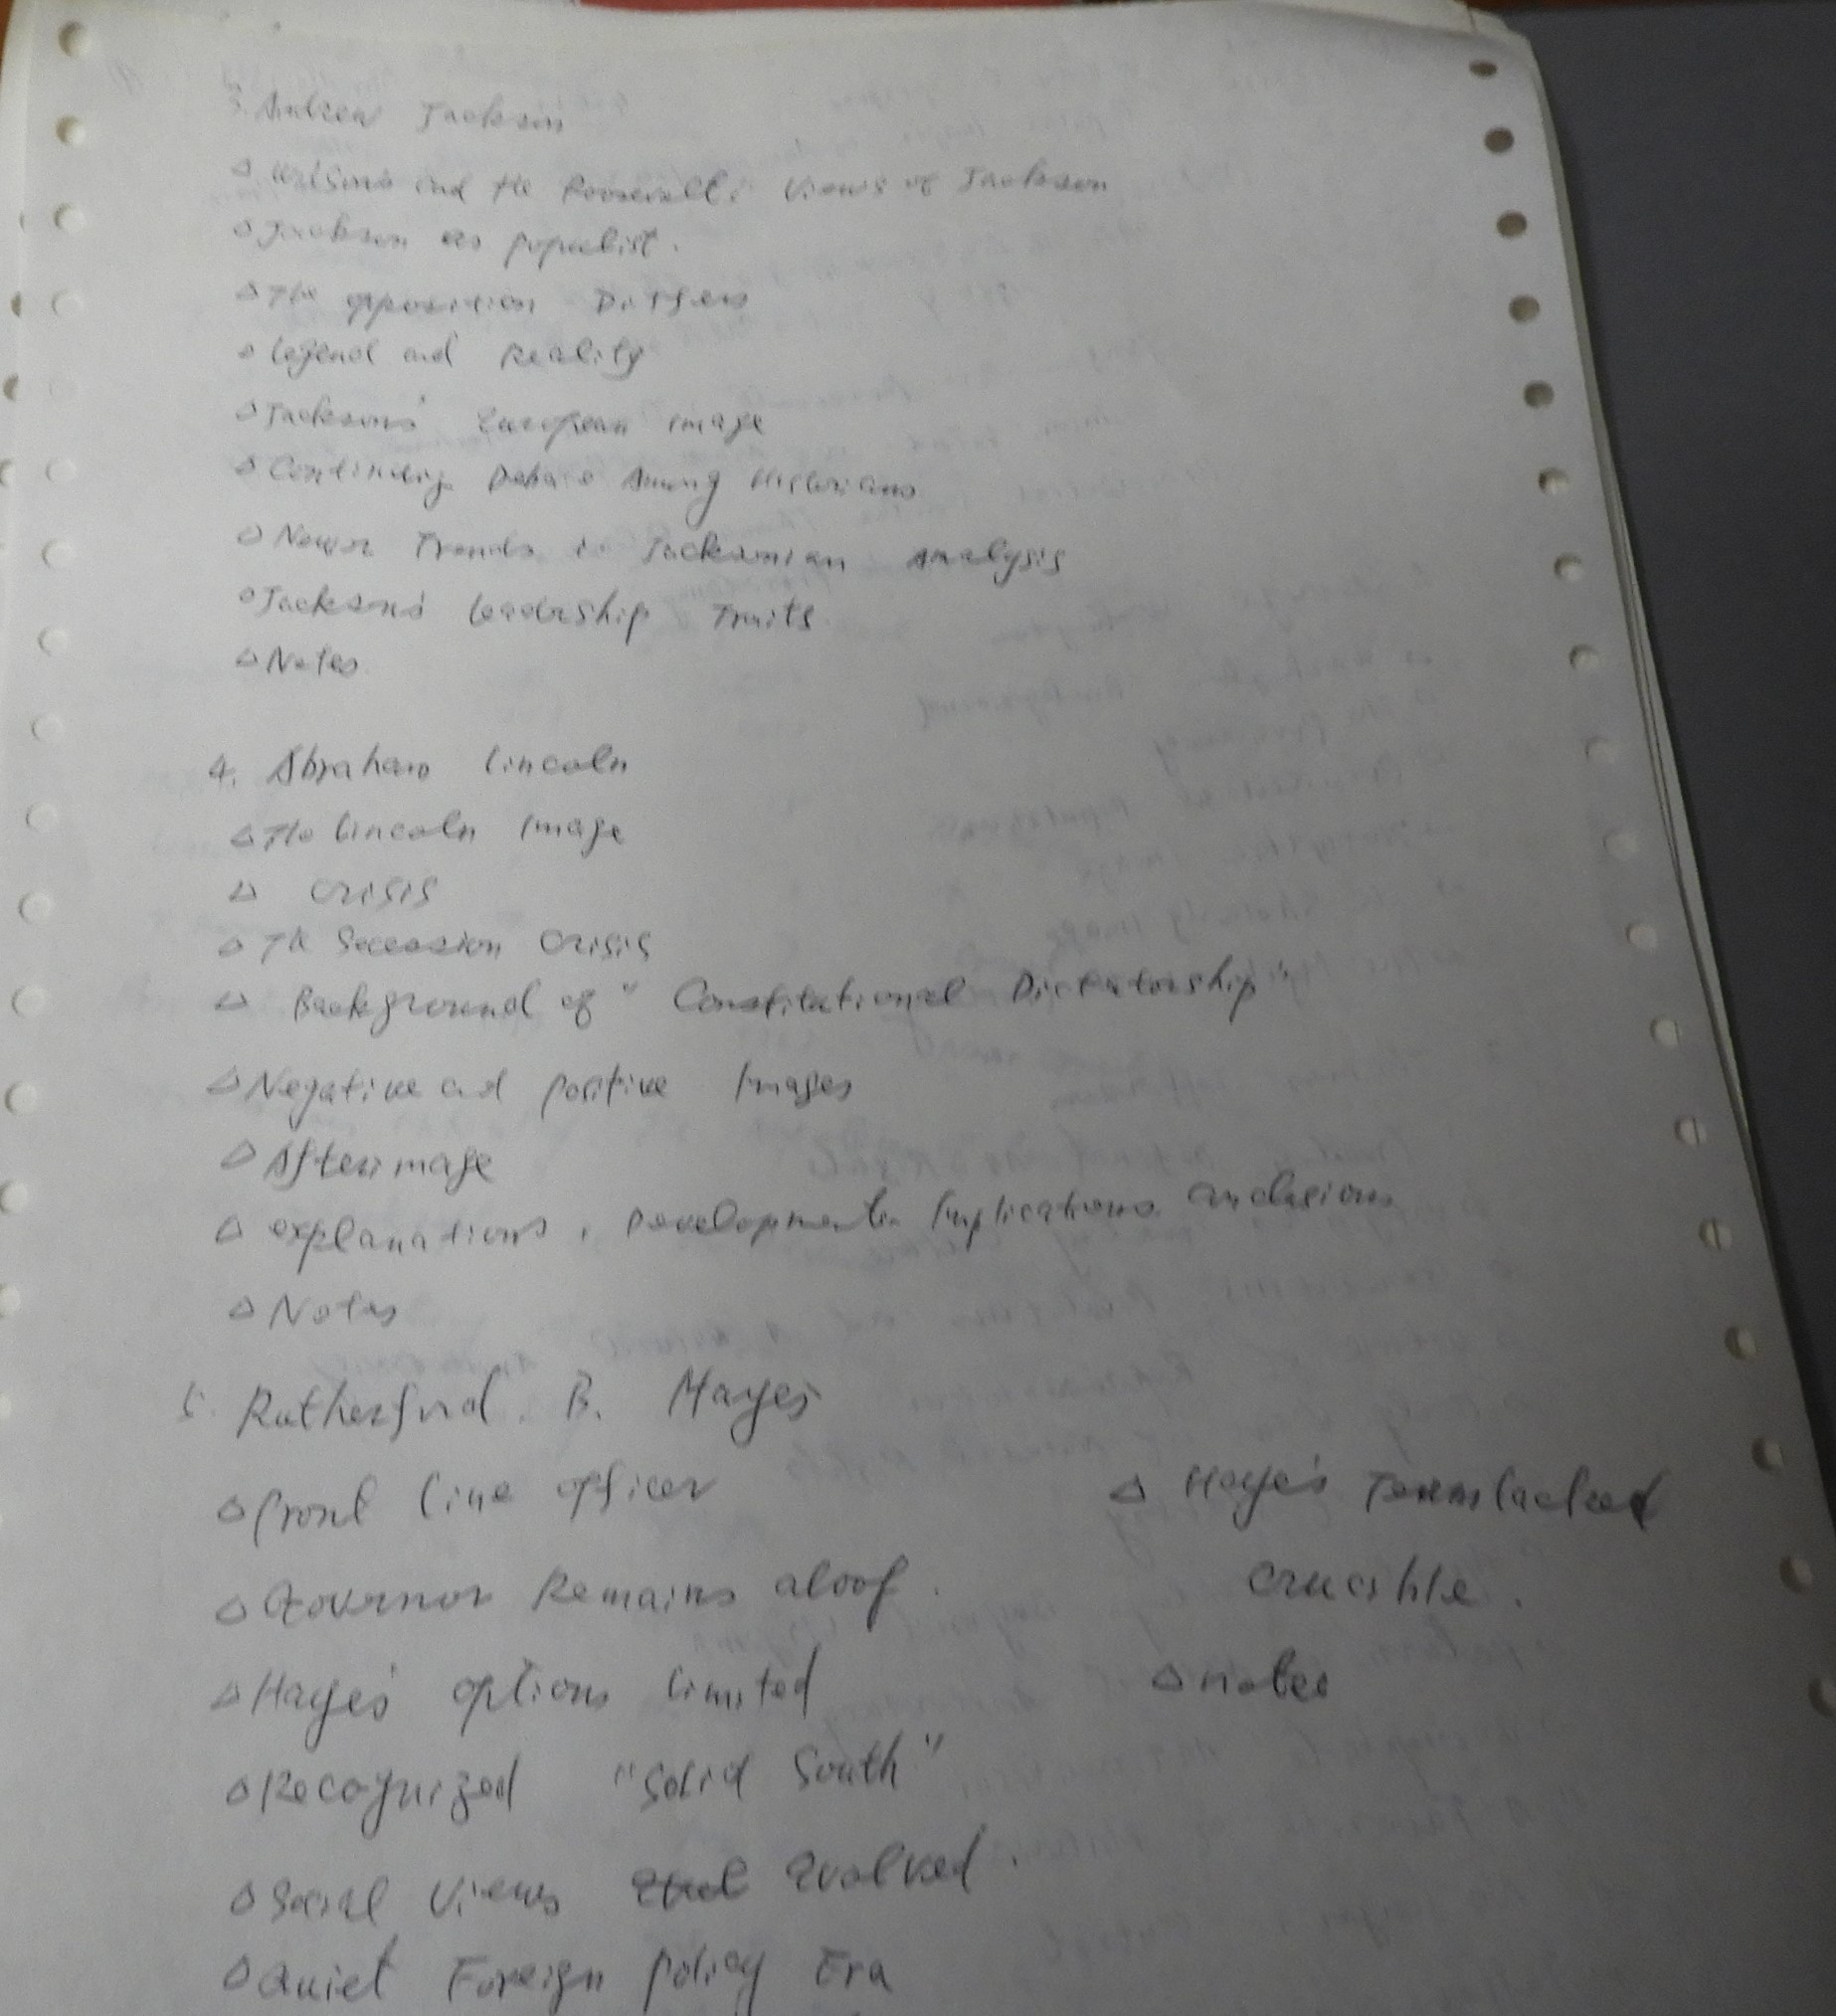 3. Andrew Jackson
△ Wilson's and the Roosevelts Views of Jackson
△ Jackson as populist.
△ The opposition Differs
△ Legend and Reality
△ Jackson's European image
△ Continuing Debate Among Historians
△ Newer Trends in Jacksonian Analysis
△ Jackson's leadership Traits
△ Notes
4. Abraham Lincoln
△ The Lincoln Image
△ Crisis
△ The Secession Crisis
△ Background of "Constitutional Dictatorship"
△ Negative and positive Images
△ Afterimage
△ explanations, Developments Implications conclusions
△ Notes
5. Rutherford. B. Hayes
△ front line officer
△ Governor Remains aloof.
△ Hayes' options limited
△ Recognized "Solid South"
△ Social Views Evolved.
△ Quiet Foreign policy Era
△ Hayes' Term lacked
crucible.
△ notes